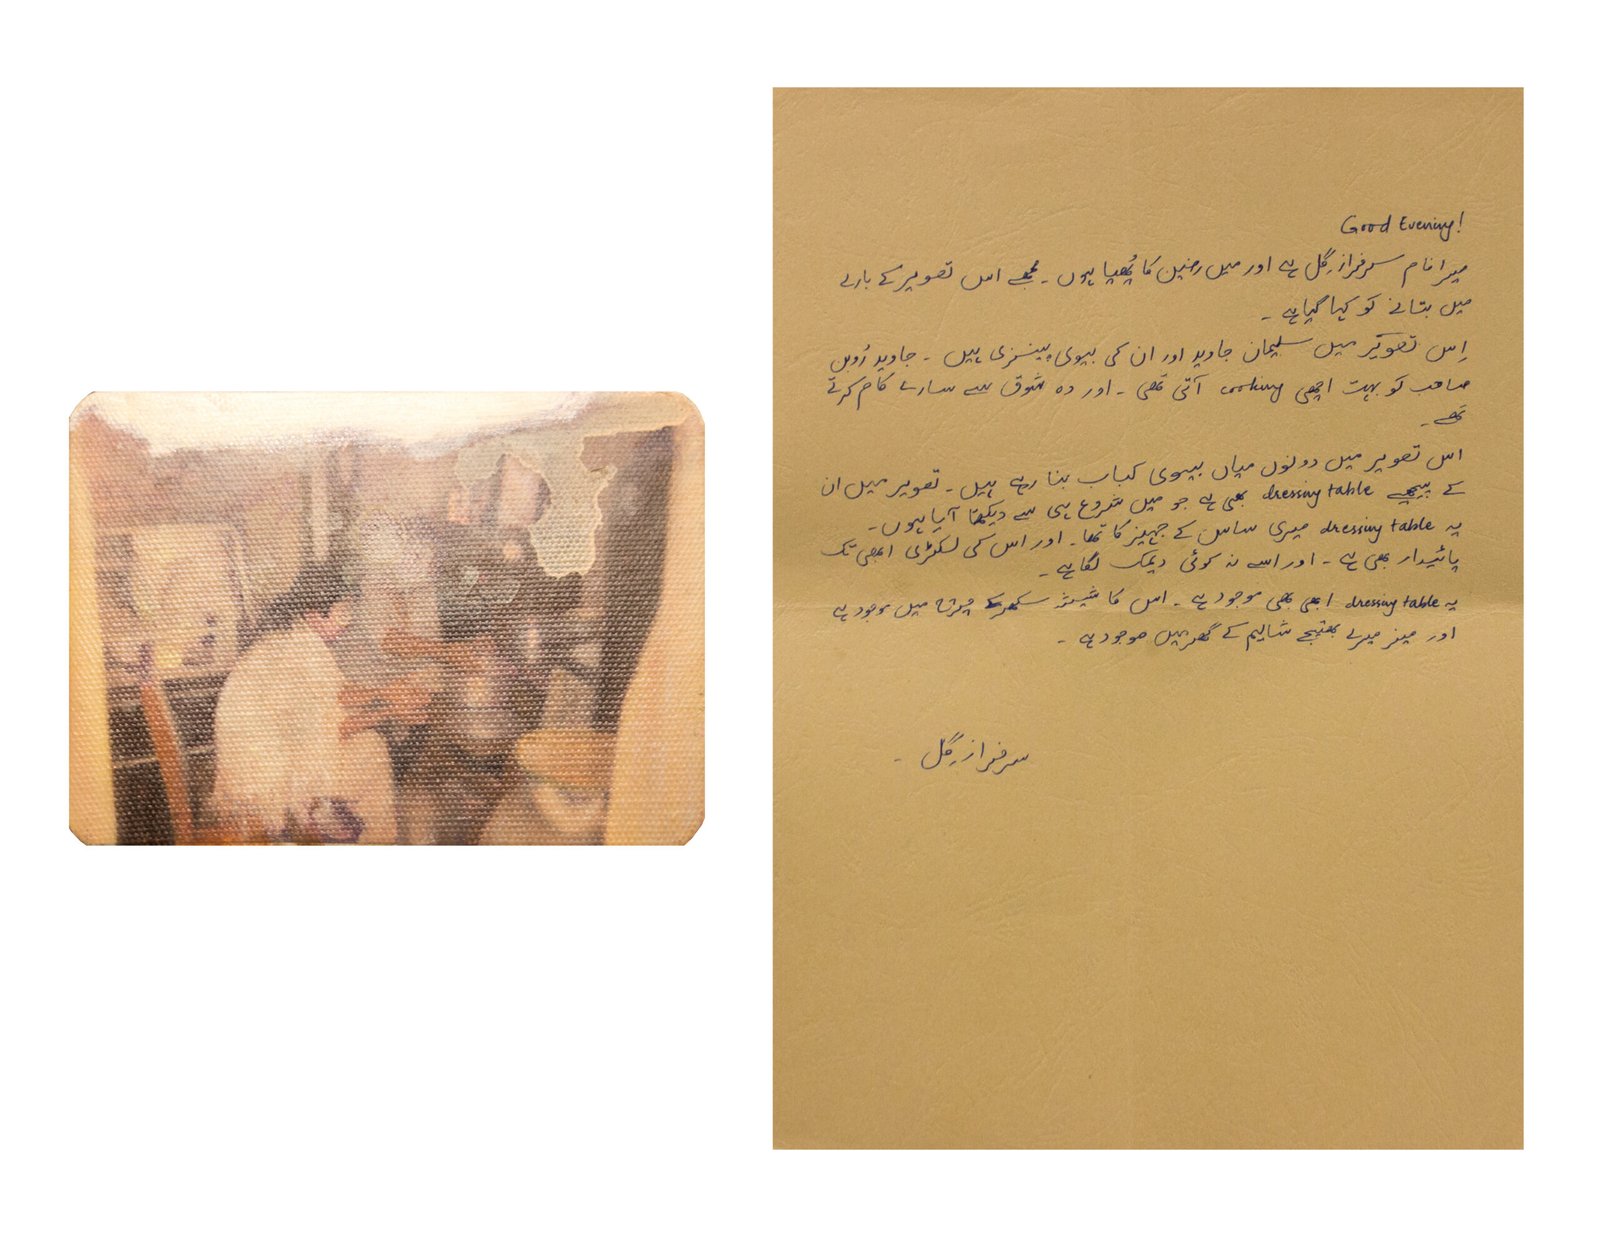 Good Evening!
میرا نام سرفراز گِل ہے اور میں رخین کا پُھپا ہوں۔ مجھے اس تصویر کے بارے
میں بتانے کو کہا گیا ہے ۔
اِس تصویر میں سلیمان جاوید اور ان کی بیوی پینسزی ہیں ۔ جاوید رُوبن
صاحب کو بہت اچھی cooking آتی تھی ۔ اور وہ شوق سے سارے کام کرتے
تھے۔
اس تصویر میں دونوں میاں بیوی کباب بنا رہے ہیں ۔ تصویر میں ان
کے پیچھے dressing table بھی ہے جو میں شروع ہی سے دیکھتا آیا ہوں۔
یہ dressing table میری ساس کے جہیز کا تھا۔ اور اس کی لکڑی ابھی تک
پائیدار بھی ہے ۔ اور اسے نہ کوئی دیمک لگا ہے ۔
یہ dressing table ابھی بھی موجود ہے ۔ اس کا شیشہ سکھر کے چرچ میں موجود ہے
اور میز میرے بھتیجے شالیم کے گھر میں موجود ہے ۔
سرفراز گِل ۔